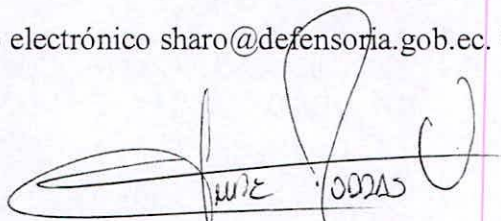 electrónico sharo@defensoria.gob.ec.